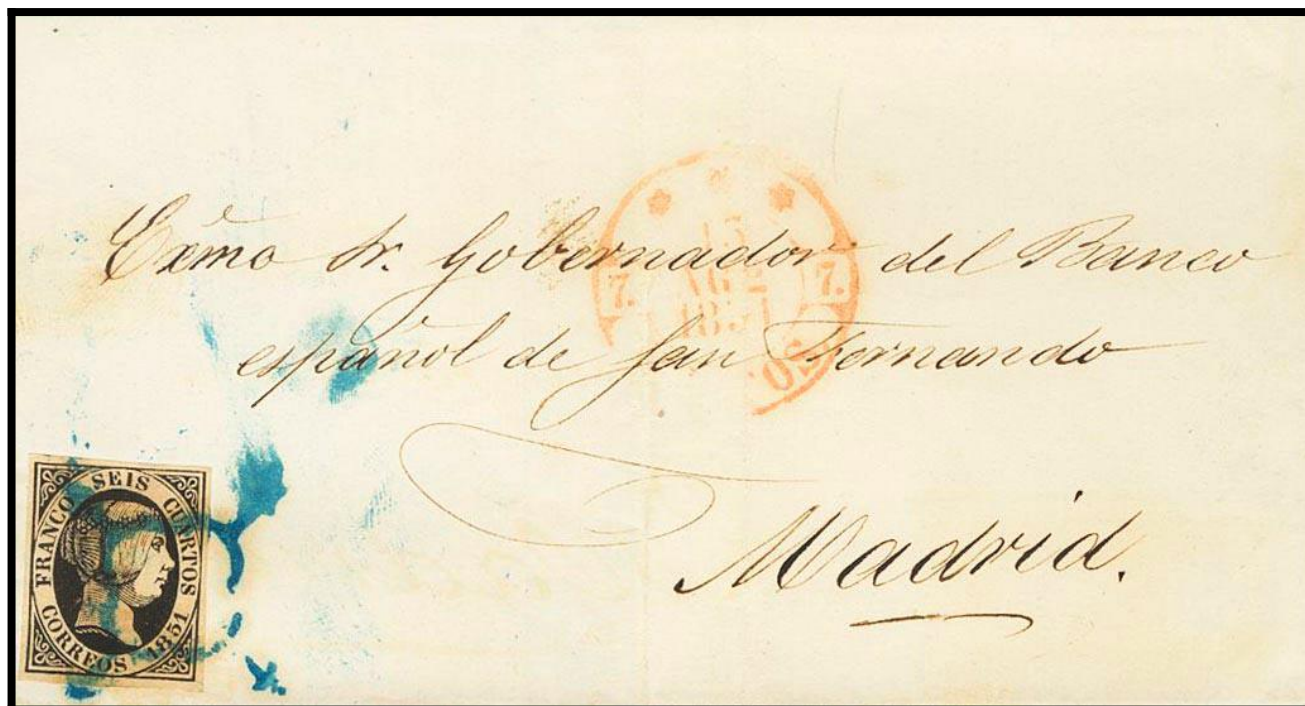 Exmo Sr. Gobernador del Banco
español de San Fernando
Madrid.
15
AGO
1851
7. 7.
FRANCO SEIS CUARTOS
CORREOS 1851